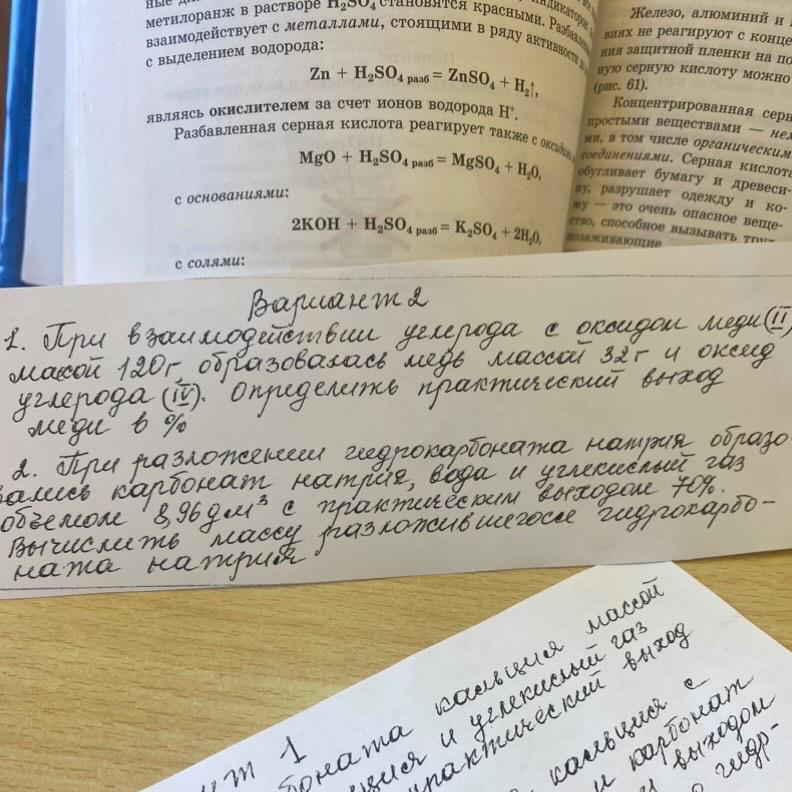 метилоранж в растворе H₂SO₄ становятся красными.
взаимодействует с металлами, стоящими в ряду активности
с выделением водорода:
Zn + H₂SO₄ разб = ZnSO₄ + H₂↑,
являясь окислителем за счет ионов водорода H⁺.
Разбавленная серная кислота реагирует также с
MgO + H₂SO₄ разб = MgSO₄ + H₂O,
с основаниями:
2KOH + H₂SO₄ разб = K₂SO₄ + 2H₂O,
с солями:
Железо, алюминий и
виях не реагируют с конце
ния защитной пленки на по
ную серную кислоту можно
(рис. 61).
Концентрированная серн
простыми веществами — нем
ми, в том числе органическим
соединениями. Серная кислота
обугливает бумагу и древеси-
ну, разрушает одежду и ко-
жу — это очень опасное веще-
ство, способное вызывать
Вариант 2
1. При взаимодействии углерода с оксидом меди (II)
массой 120 г образовалась медь массой 32 г и оксид
углерода (IV). Определить практический выход
меди в %
2. При разложении гидрокарбоната натрия образо-
вались карбонат натрия, вода и углекислый газ
объемом 8,96 дм³ с практическим выходом 70%.
Вычислить массу разложившегося гидрокарбо-
ната натрия
нт 1
боната кальция массой
ция и углекислый газ
практический выход
кальция с
и карбонат
выходом
гидр-